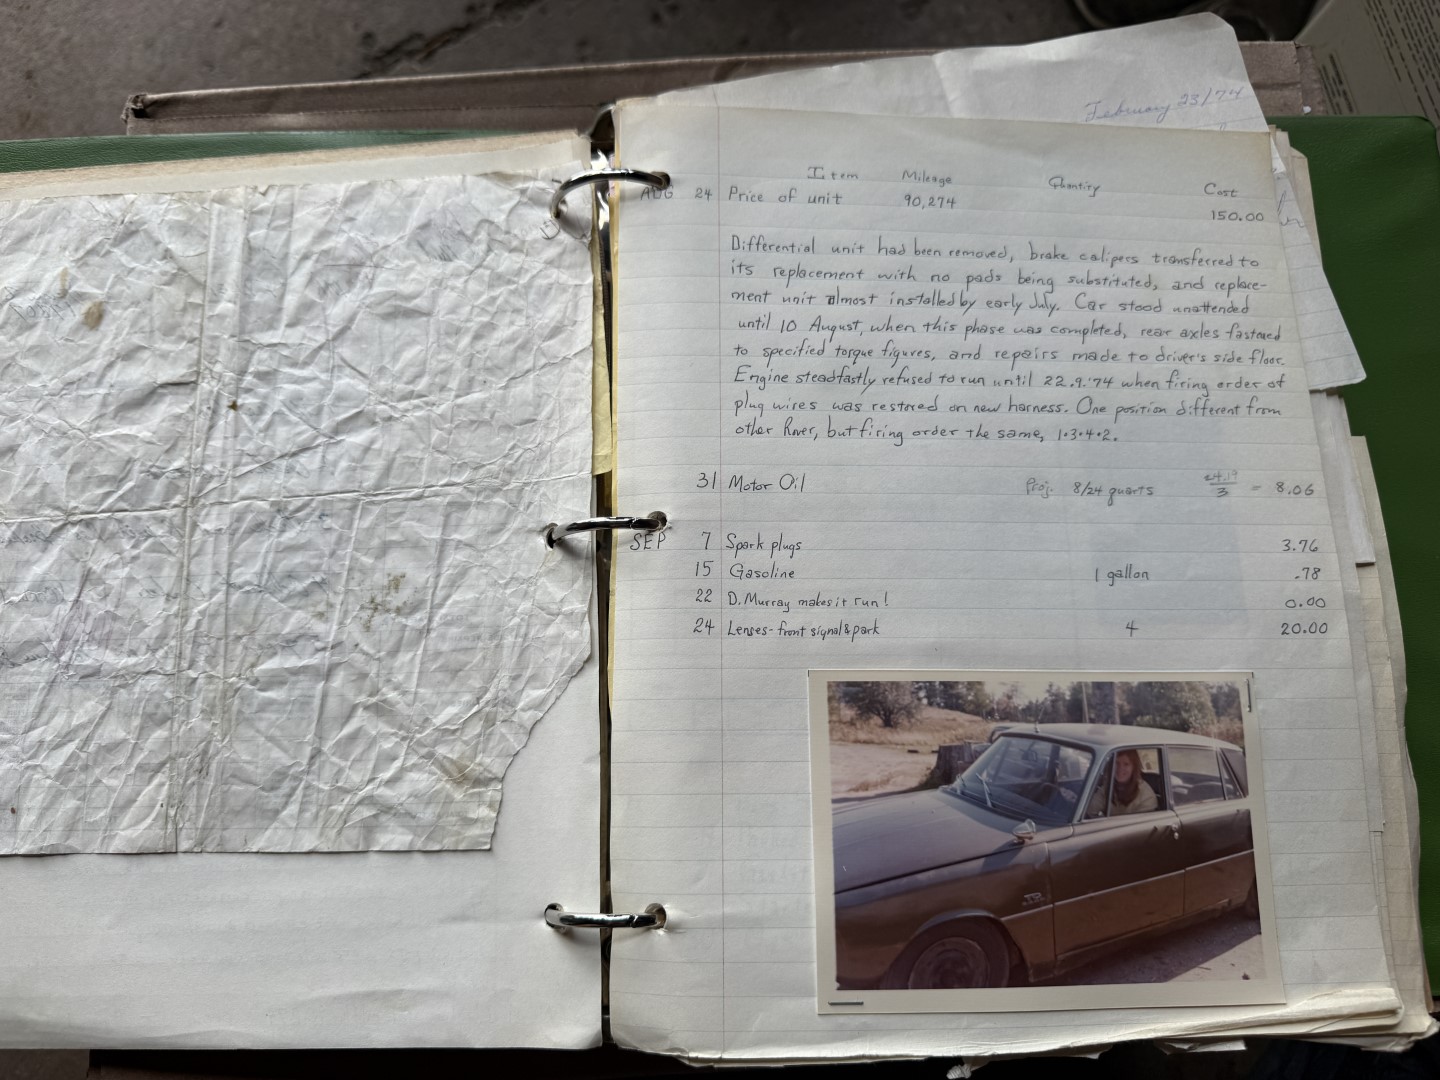 February 23/74
Item Mileage Quantity Cost
AUG 24 Price of unit 90,274 150.00
Differential unit had been removed, brake calipers transferred to
its replacement with no pads being substituted, and replace-
ment unit almost installed by early July. Car stood unattended
until 10 August, when this phase was completed, rear axles fastened
to specified torque figures, and repairs made to driver's side floor.
Engine steadfastly refused to run until 22.9.'74 when firing order of
plug wires was restored on new harness. One position different from
other Rover, but firing order the same, 1·3·4·2.
31 Motor Oil Proj. 8/24 quarts 24.19/3 = 8.06
SEP 7 Spark plugs 3.76
15 Gasoline 1 gallon .78
22 D. Murray makes it run! 0.00
24 Lenses-front signal & park 4 20.00